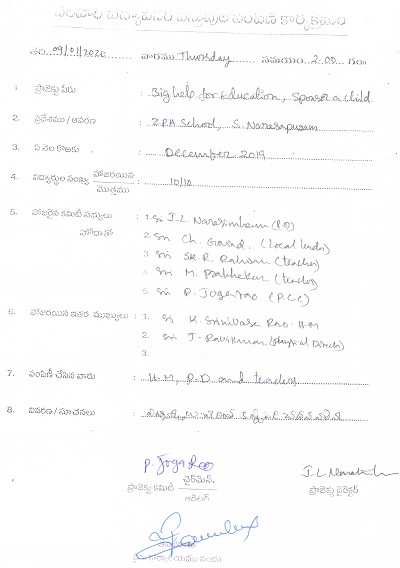 నెలవారి విద్యావసర వస్తువుల పంపిణీ కార్యక్రమం
తేది. 09/01/2020 వారము Thursday సమయం. 2:00 గం
1. ప్రాజెక్టు పేరు : Bighelp for Education, Sponsor a child
2. ప్రదేశము / ఆవరణ : Z.P.H School, S. Narasapuram
3. ఏ నెల కొఱకు : December 2019
4. విద్యార్థుల సంఖ్య హాజరయిన / మొత్తము : 10/10
5. హాజరైన కమిటీ సభ్యులు : 1. Sri J.L Narasimham (P.D)
హోదాతో 2. Sri Ch. Govind, (Local leader)
3 Sri SK.R. Rahim (teacher)
4 Sri M. Prabhakar (teacher)
5 Sri P. Joga rao (P.C.C)
6. హాజరయిన ఇతర ముఖ్యులు : 1. Sri K. Srinivasa Rao - H.M
2. Sri T. Ravikumar (Physical Director)
3.
7. పంపిణీ చేసిన వారు : H.M, P.D and teachers
8. వివరణ / సూచనలు :
P. Joga Rao
ప్రాజెక్టు కమిటీ ఛైర్మెన్.
ఆడిటర్
J.L Narasimham
ప్రాజెక్టు డైరెక్టర్